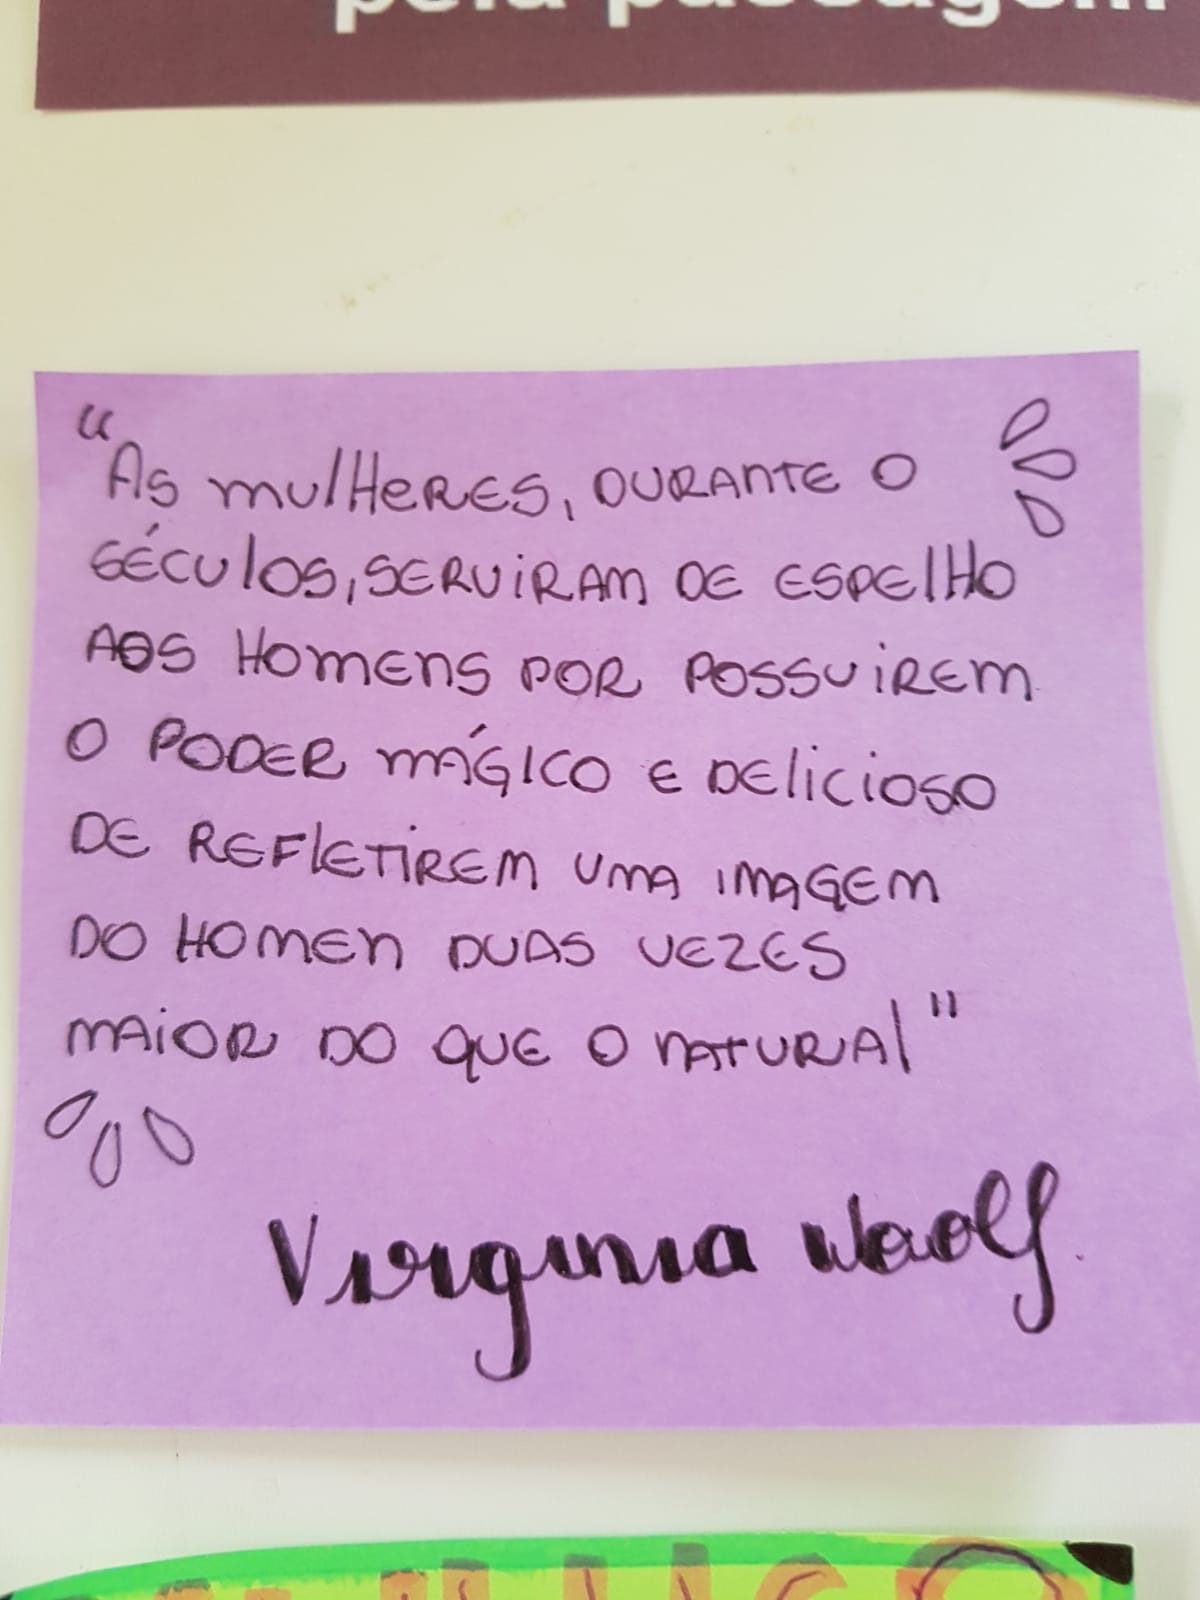 pela passagem
“As mulheres, durante o
séculos, serviram de espelho
aos homens por possuirem
o poder mágico e delicioso
de refletirem uma imagem
do homen duas vezes
maior do que o natural"
Virginia Woolf.